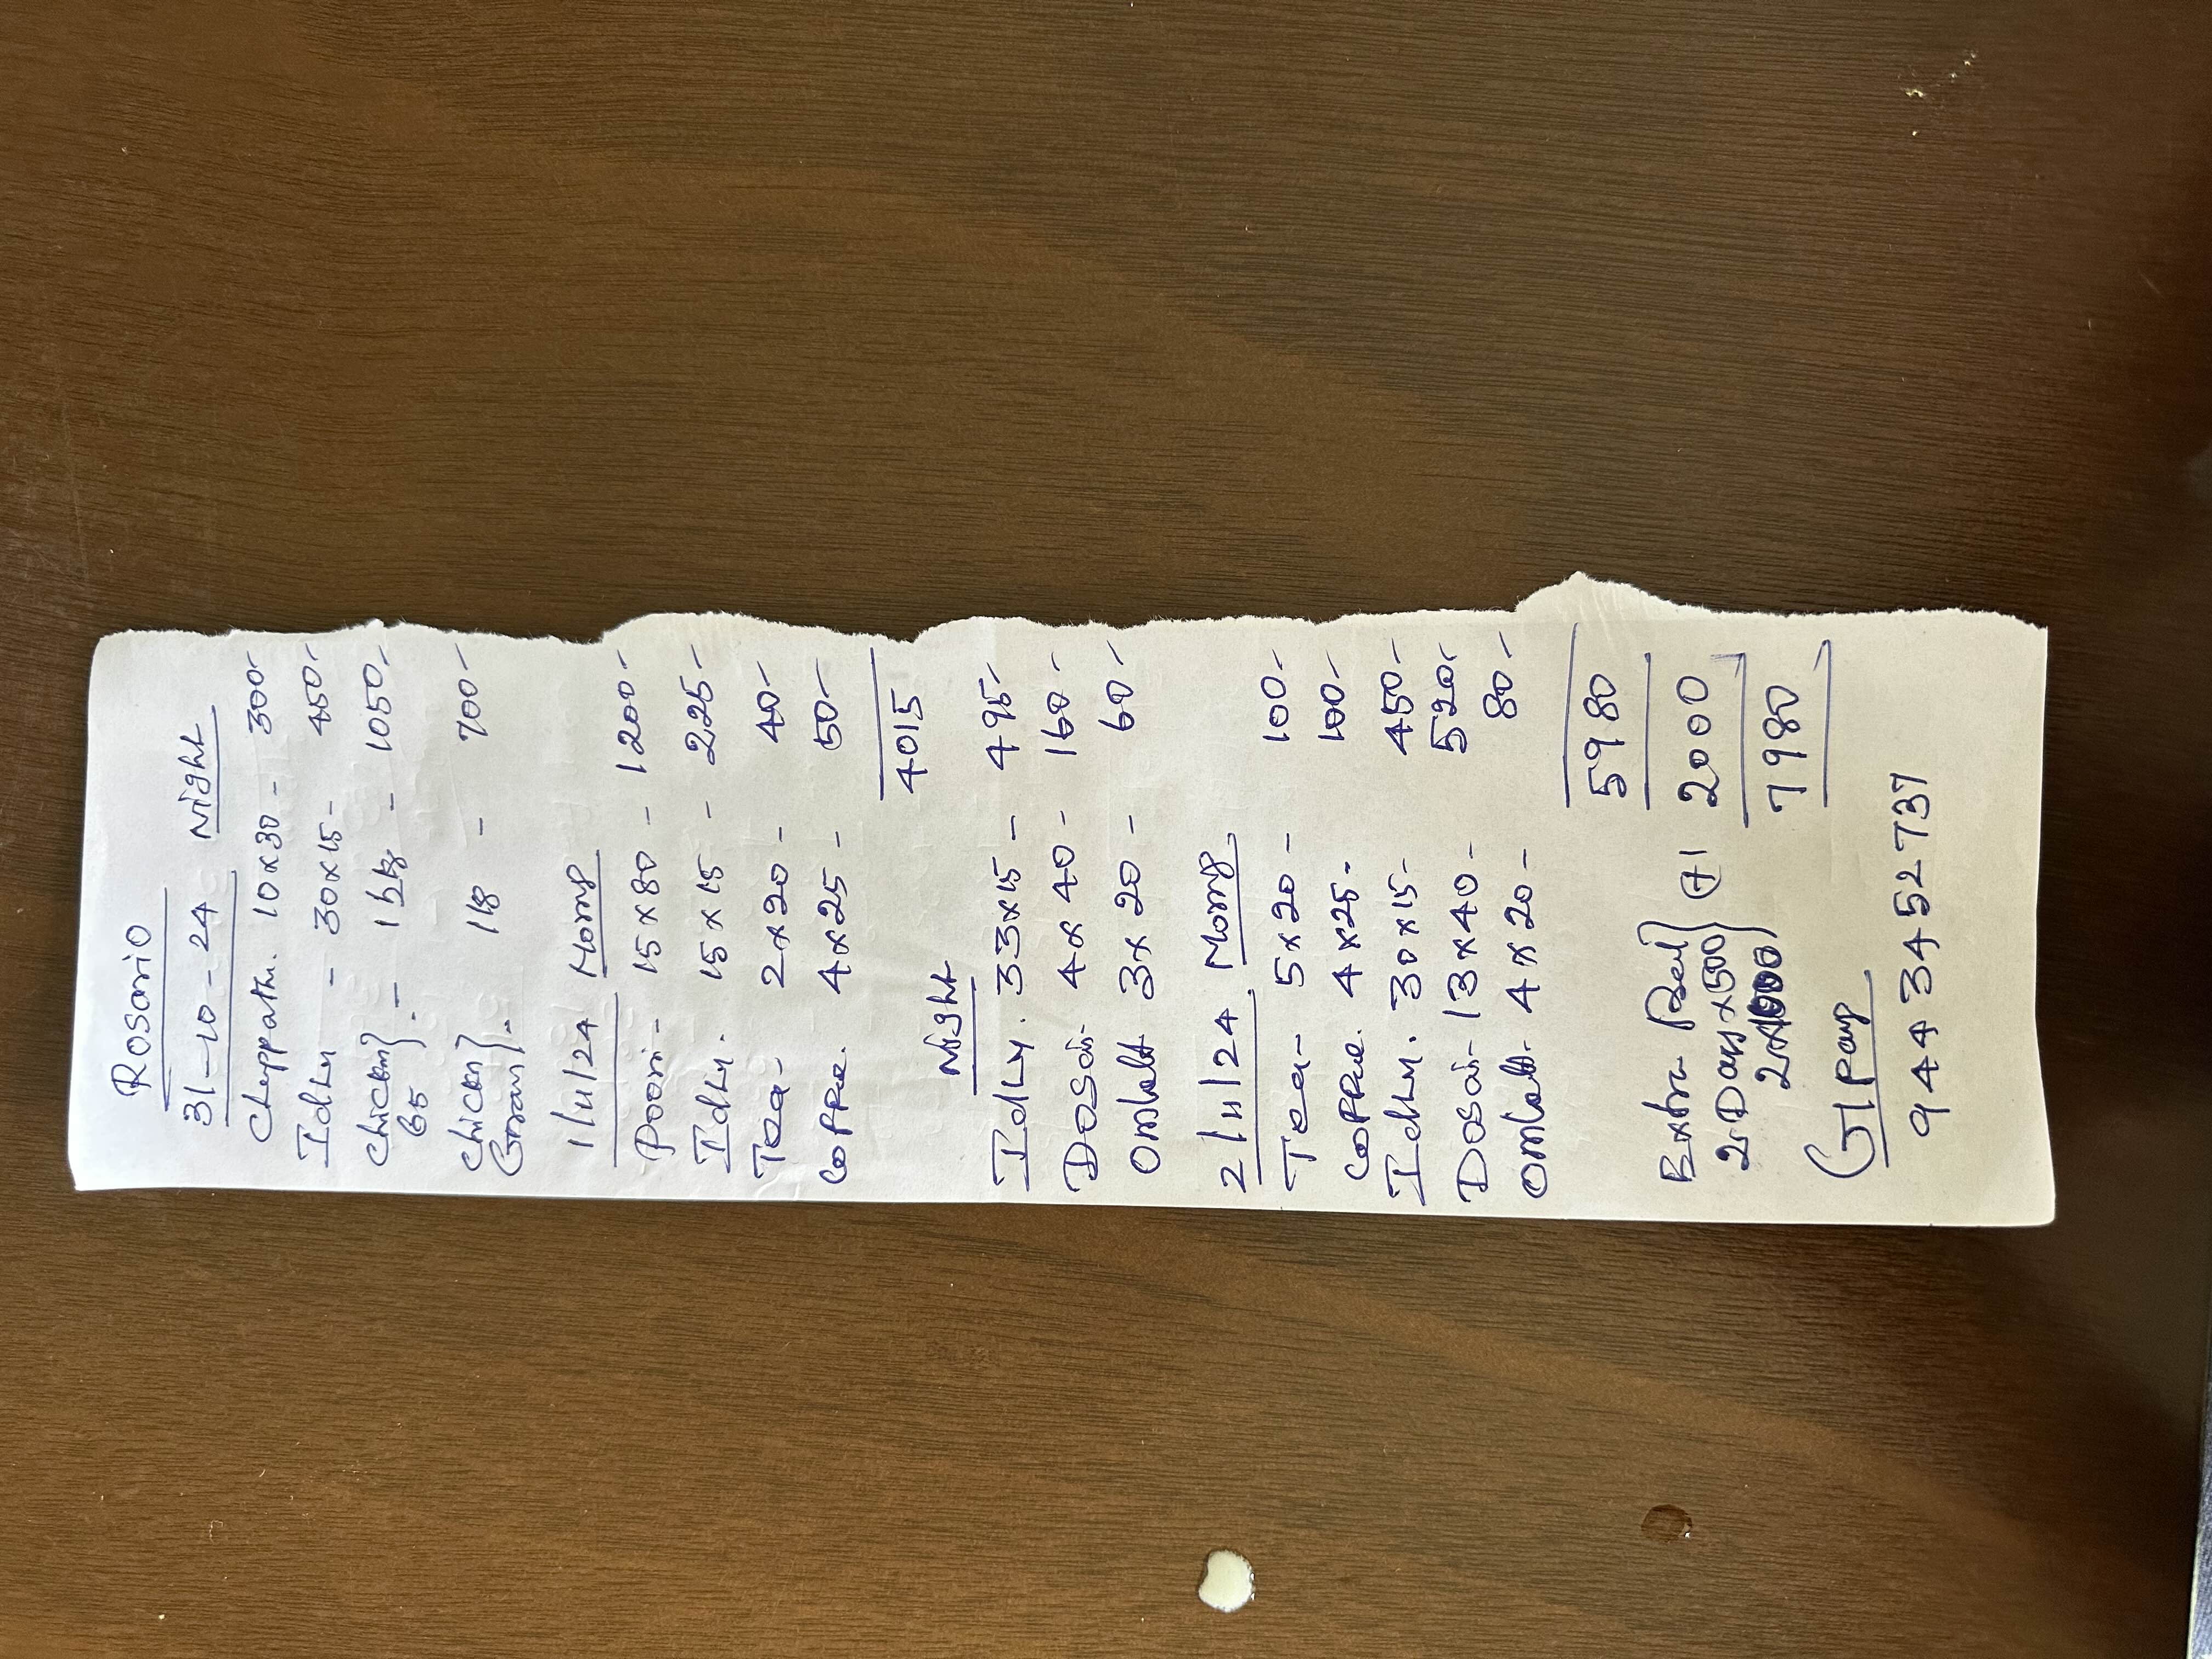 Rosario
31-10-24 Night
Chappathi. 10x30 - 300-
Idly - 30x15 - 450-
Chicken} - 1 1/2 kg - 1050-
65
Chicken} 1 kg - 700-
Gravy
1/11/24 Morng
Poori - 15x80 - 1200-
Idly. 15x15 - 225-
Tea - 2x20 - 40-
Coffee. 4x25 - 50-
4015
Night
Idly. 33x15 - 495-
Dosai 4x40 - 160-
Omlett 3x20 - 60-
2/11/24 Morng
Tea - 5x20 - 100-
Coffee. 4x25 - 100-
Idly. 30x15 - 450-
Dosai - 13x40 - 520-
Omlett - 4x20 - 80-
5980
Extra Bed} (+) 2000
2 Days x 500
2x1000
7980
G pay
9443452737